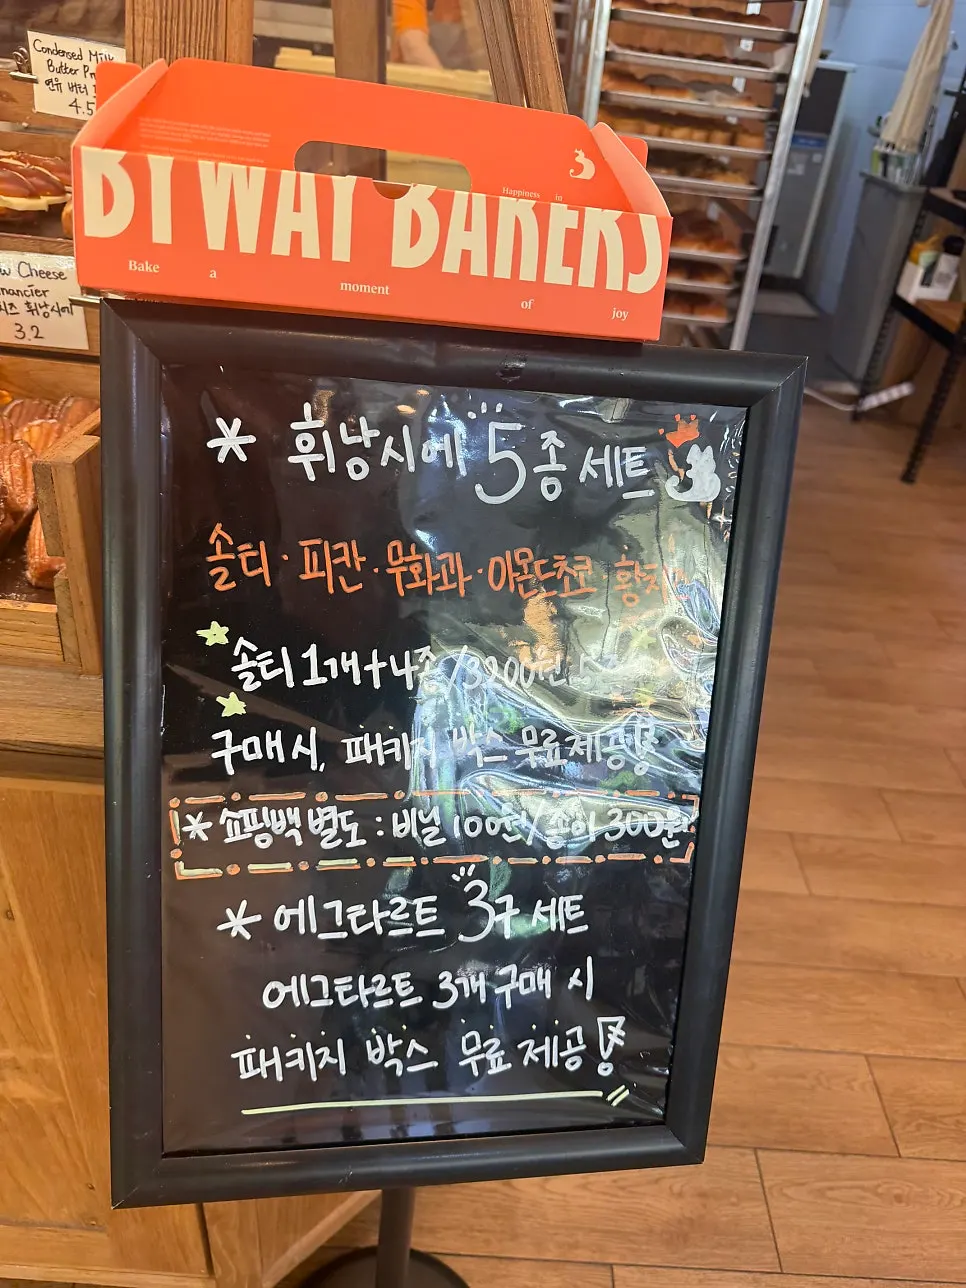 Condensed Milk
Butter
연유 버터
4.5
Cheese
3.2
BYWAY BAKERS
Happiness in
Bake a moment of joy
* 휘낭시에 5종 세트
솔티 · 피칸 · 무화과 · 아몬드초코 · 황치즈
솔티 1개 + 4종 / 3200원
구매 시, 패키지 박스 무료 제공!
* 쇼핑백 별도 : 비닐 100원 / 종이 300원
* 에그타르트 3구 세트
에그타르트 3개 구매 시
패키지 박스 무료 제공!